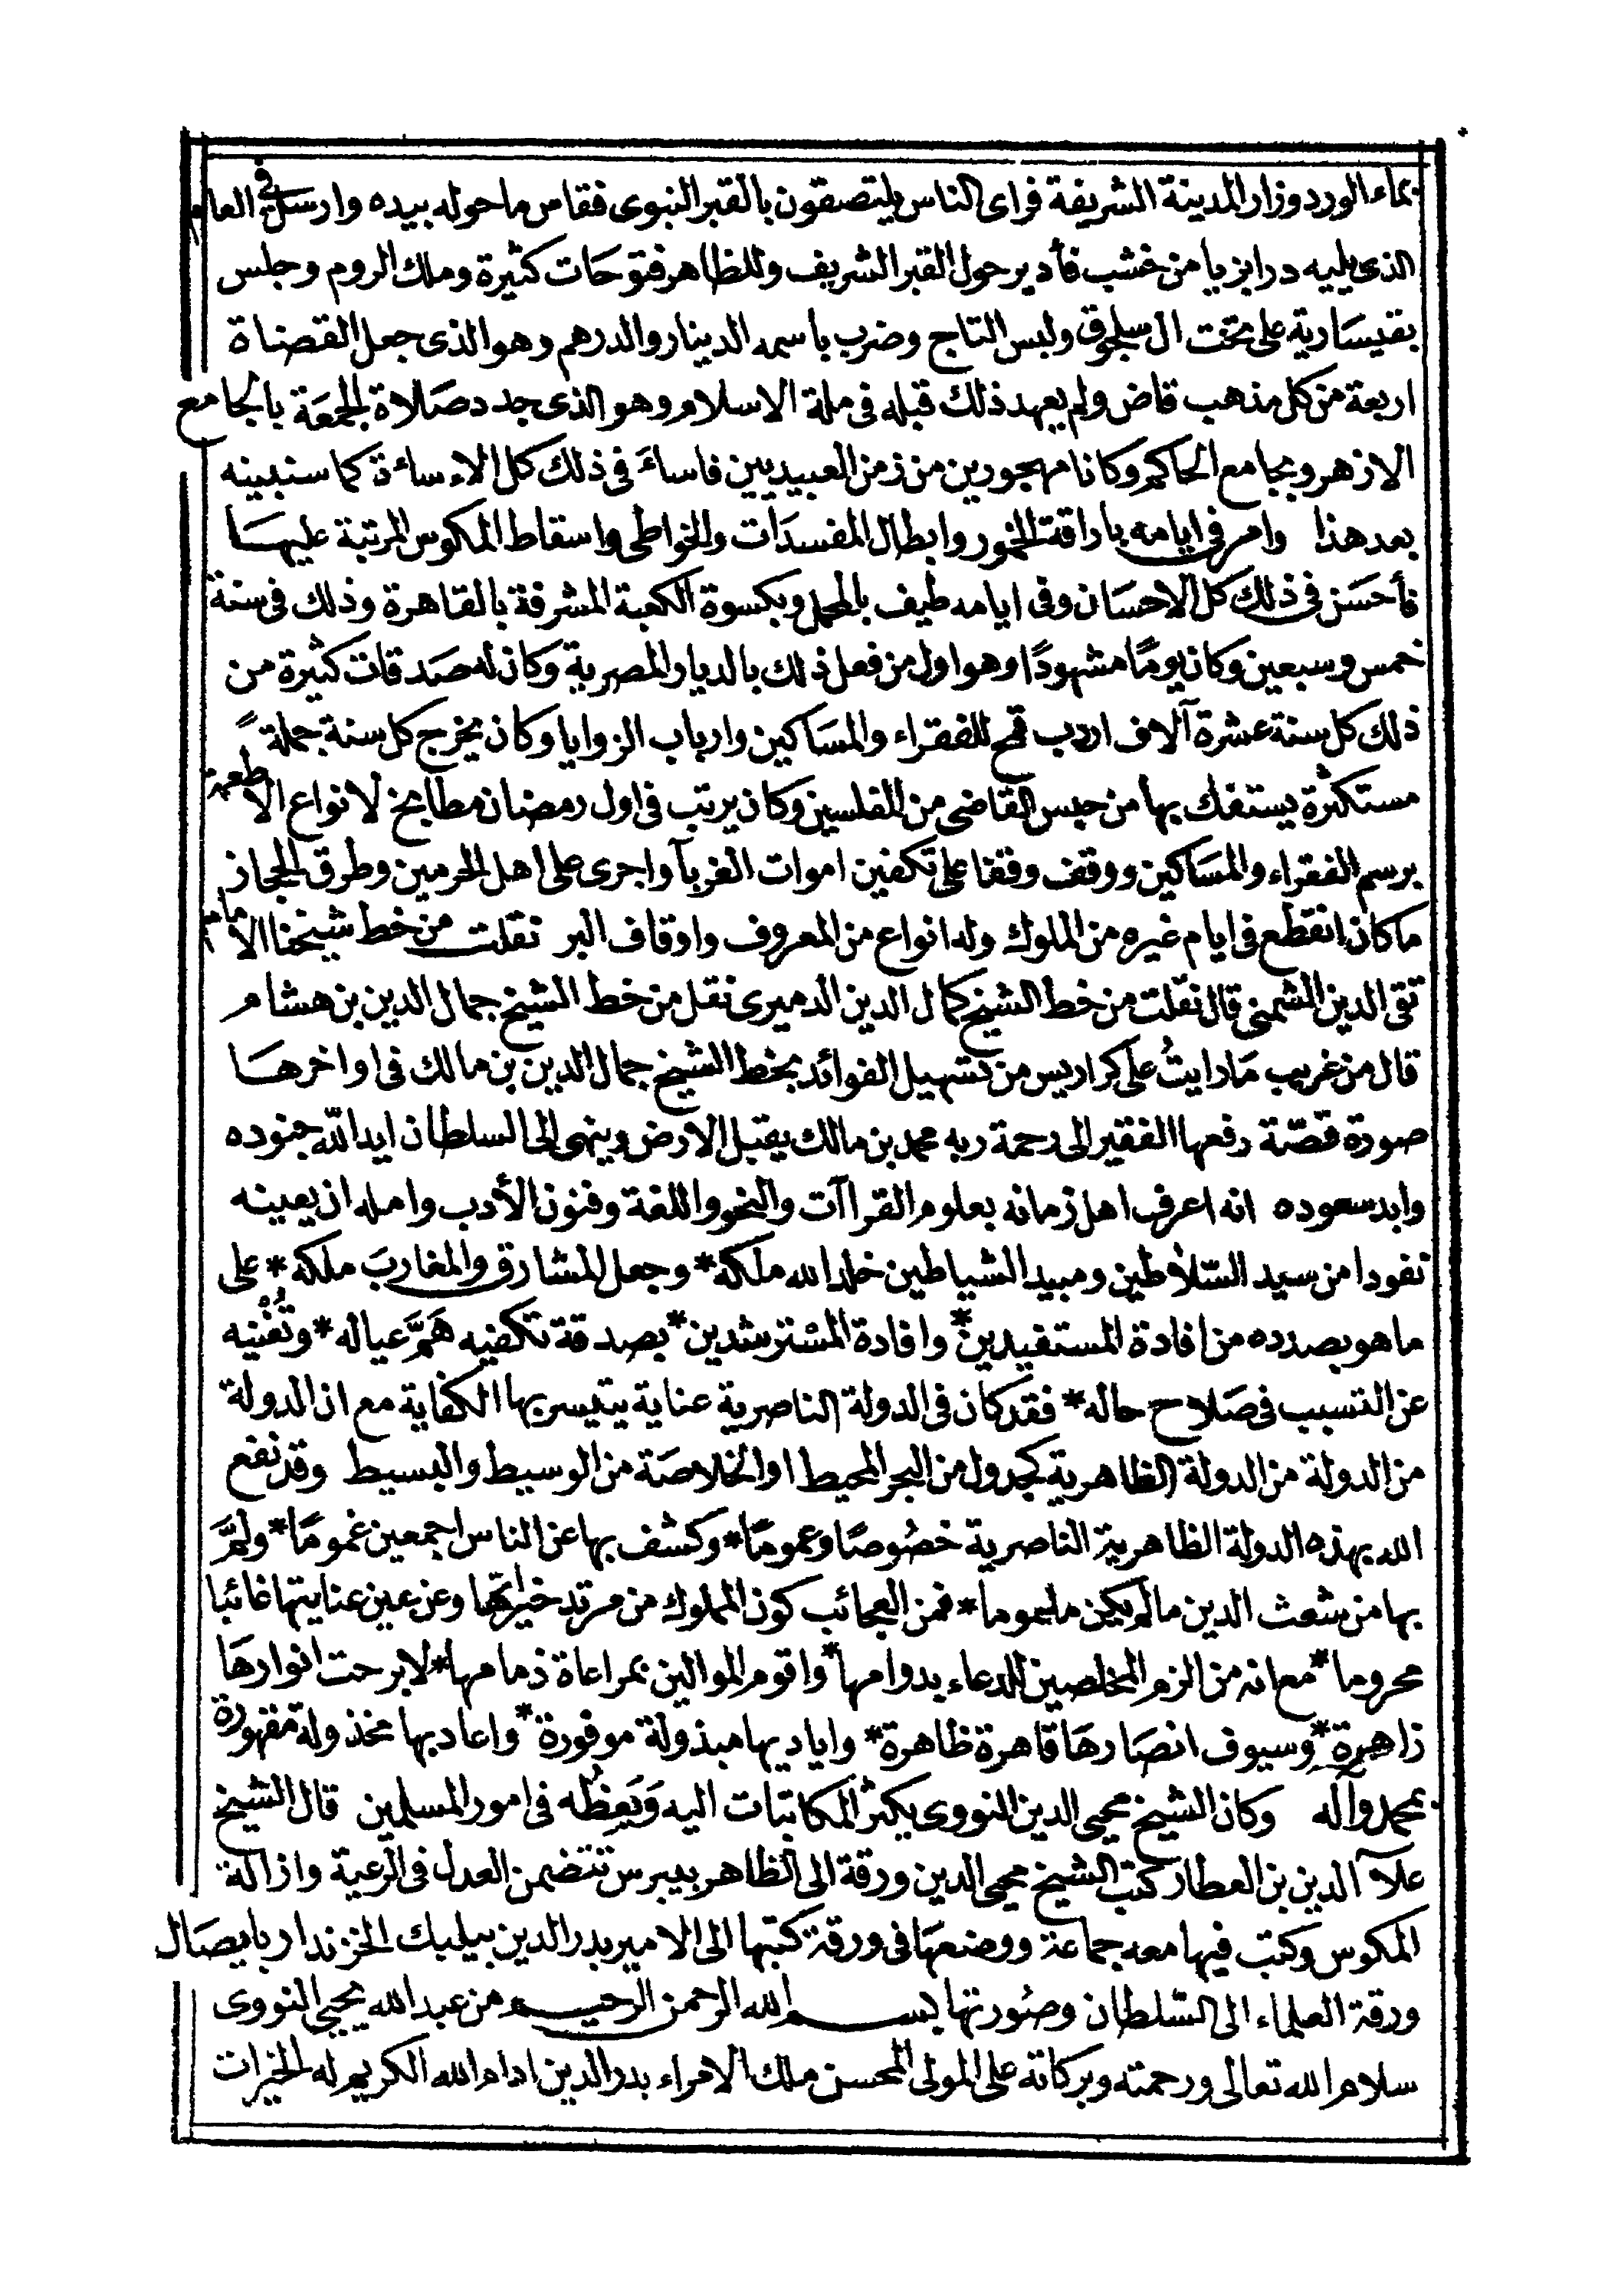 بماء الورد وزار المدينة الشريفة فراى الناس يلتصقون بالقبر النبوى فقاس ما حوله بيده وارسل فى العام
الذى يليه درابزيا من خشب فأدير حول القبر الشريف وللظاهر فتوحات كثيرة وملك الروم وجلس
بقيسارية على تخت ال سلجوق ولبس التاج وضرب باسمه الدينار والدرهم وهو الذى جعل القضاة
اربعة من كل مذهب قاض ولم يعهد ذلك قبله فى ملة الاسلام وهو الذى جدد صلاة الجمعة بالجامع
الازهر وبجامع الحاكم وكانا مهجورين من زمن العبيديين فاساءَ فى ذلك كل الاساءة كما سنبينه
بعد هذا وامر فى ايامه باراقة الخمور وابطال المفسدات والخواطى واسقاط المكوس المرتبة عليها
فأحسن فى ذلك كل الاحسان وفى ايامه طيف بالمحمل وبكسوة الكعبة المشرفة بالقاهرة وذلك فى سنة
خمس وسبعين وكان يومًا مشهودًا وهو اول من فعل ذلك بالديار المصرية وكان له صدقات كثيرة من
ذلك كل سنة عشرة آلاف اردب قمح للفقراء والمساكين وارباب الزوايا وكان يخرج كل سنة جملةً
مستكثرة يستفك بها من حبس القاضى من المفلسين وكان يرتب فى اول رمضان مطابخ لانواع الاطعمة
برسم الفقراء والمساكين ووقف وقفا على تكفين اموات الغربآ واجرى على اهل الحرمين وطرق الحجاز
ما كان انقطع فى ايام غيره من الملوك وله انواع من المعروف واوقاف البر نقلت من خط شيخنا الامام
تقى الدين الشمنى قال نقلت من خط الشيخ كمال الدين الدميرى نقل من خط الشيخ جمال الدين بن هشام
قال من غريب ما رايتُ على كراريس من تسهيل الفوائد بخط الشيخ جمال الدين بن مالك فى اواخرها
صورة قصّة رفعها الفقير الى رحمة ربه محمد بن مالك يقبل الارض وينهى الى السلطان ايد اللّه جنوده
وابد سعوده انه اعرف اهل زمانه بعلوم القراآت والنحو واللغة وفنون الأدب وامله ان يعينه
نفودا من سيد السّلاطين ومبيد الشياطين خلد الله ملكه* وجعل المشارق والمغاربَ ملكه* على
ما هو بصدده من افادة المستفيدين* وافادة المسْترشدين* بصدقة تكفيه هَمَّ عياله* وتُغْنيه
عن التسبب فى صَلاح حاله* فقد كان فى الدولة الناصرية عناية يتيسر بها الكفاية مع ان الدولة
من الدولة من الدولة الظاهرية كجدول من البحر المحيط او الخلاصة من الوسيط والبسيط وقد نفع
الله بهذه الدولة الظاهرية الناصرية خصُوصًا وعمومًا* وكشف بها عن الناس اجمعين غمومًا* ولمَّ
بها من شعث الدين ما لم يكن ملموما* فمن العجائب كون المملوك من مرتد خيراتها وعن عين عنايتها غائبا
محروما* مع انه من الزم المخلصين للدعاء بدوامها* واقوم الموالين بمراعاة ذمامها* لا برحت انوارها
زاهرة* وسيوف انصارها قاهرة ظاهرة* واياديها مبذولة موفورة* واعاديها مخذولة مقهورة
بمحمد وآله وكان الشيخ محيى الدين النووى يكثر المكاتبات اليه وَيَعِظُه فى امور المسلمين قال الشيخ
علآ الدين بن العطار كتب الشيخ محيى الدين ورقة الى الظاهر بيبرس تتضمن العدل فى الرعية وازالة
المكوس وكتب فيها معه جماعة ووضعها فى ورقة كتبها الى الامير بدر الدين بيلبك الخزندار بايصال
ورقة العلماء الى السّلطان وصُورتها بسم الله الرحمن الرحيم من عبد الله يحيى النووى
سلام الله تعالى ورحمته وبركاته على المولى المحسن ملك الامراء بدر الدين ادام الله الكريم له الخيرات